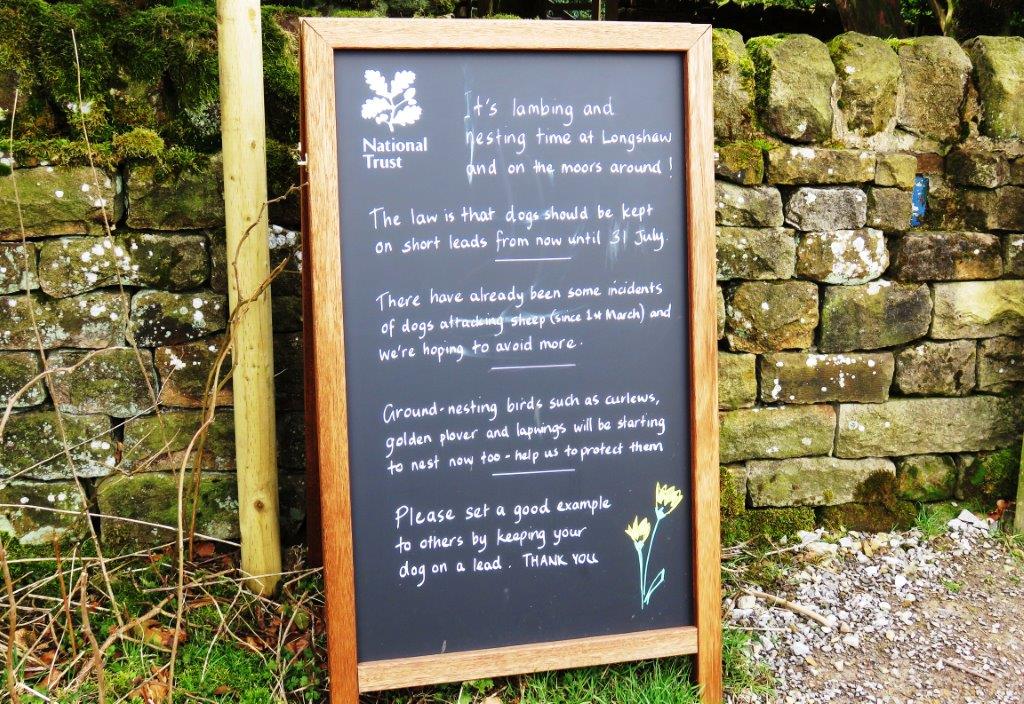 National
Trust
It's lambing and
nesting time at Longshaw
and on the moors around!
The law is that dogs should be kept
on short leads from now until 31 July.
There have already been some incidents
of dogs attacking sheep (since 1st March) and
we're hoping to avoid more.
Ground-nesting birds such as curlews,
golden plover and lapwings will be starting
to nest now too - help us to protect them
Please set a good example
to others by keeping your
dog on a lead. THANK YOU